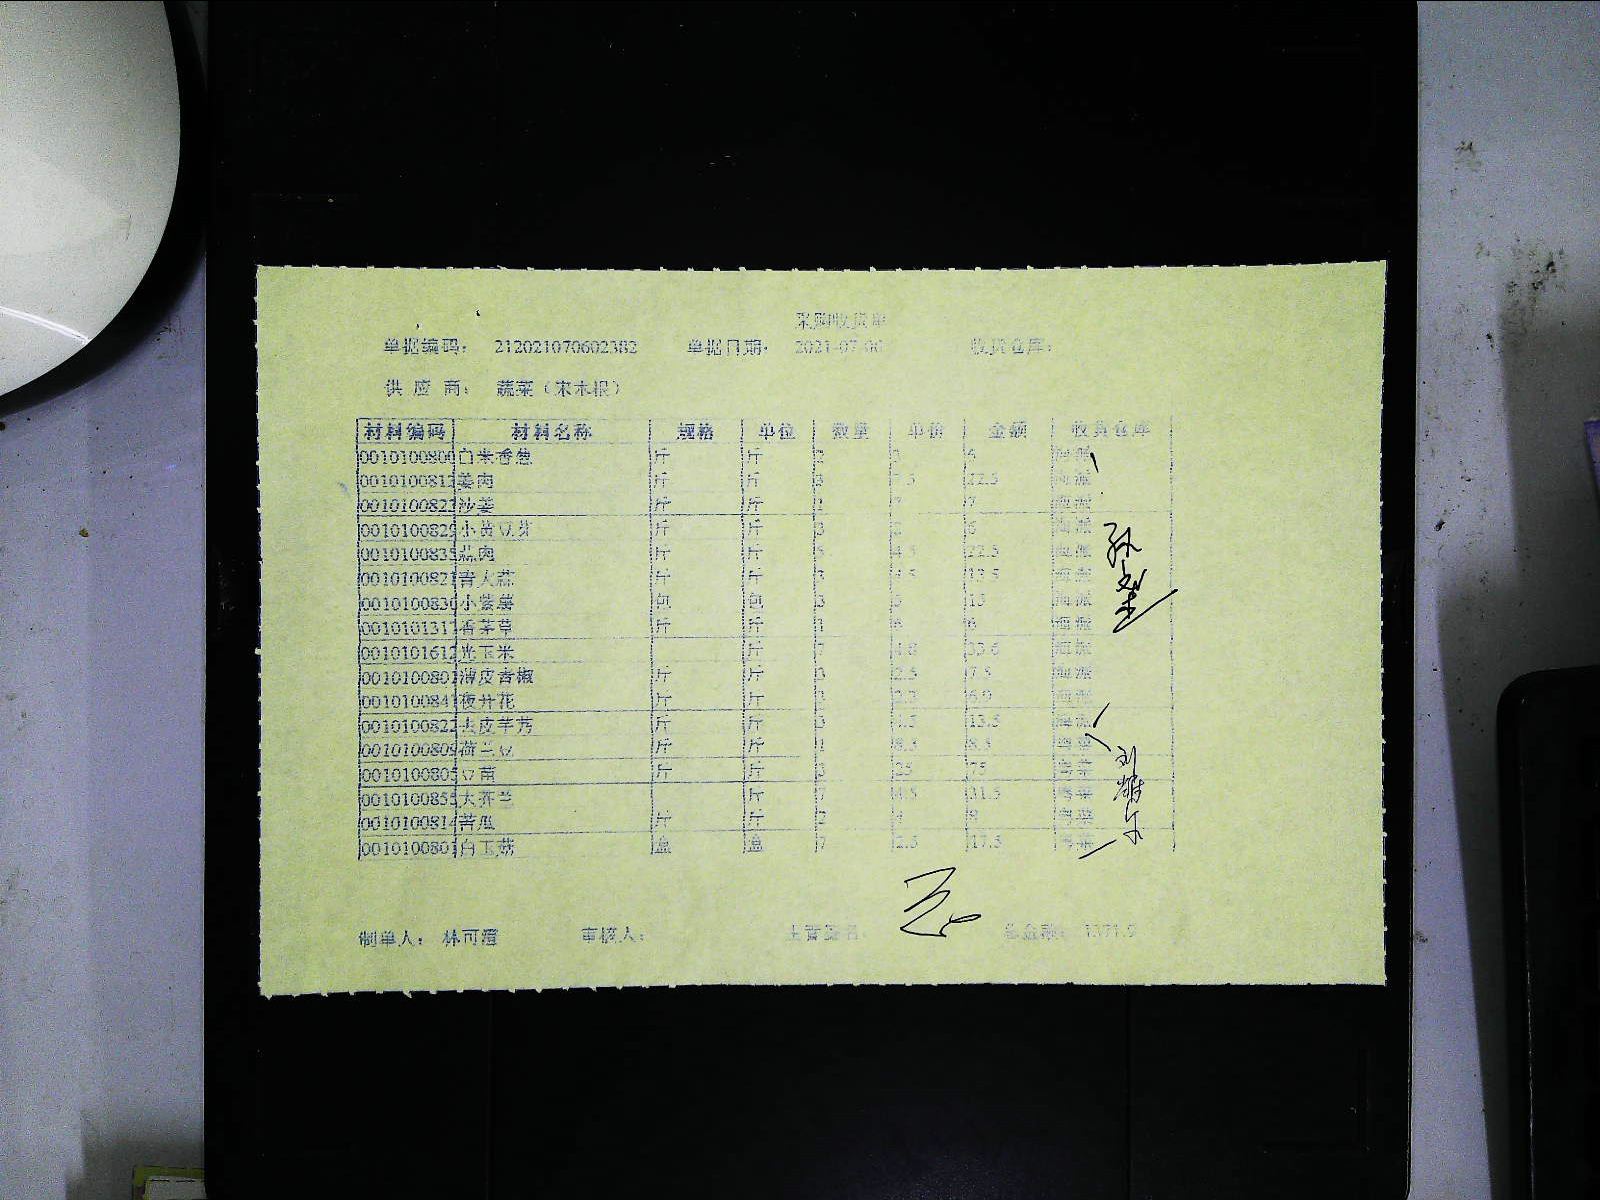 采购收货单
单据编码： 212021070602382 单据日期： 2021-07-06 收货仓库：
供 应 商： 蔬菜（宋木根）
材料编码 材料名称 规格 单位 数量 单价 金额 收货仓库
0010100800 白米香葱 斤 斤 2 3 6 海派
0010100812 姜肉 斤 斤 3 7.5 22.5 海派
0010100822 沙姜 斤 斤 1 7 7 海派
0010100829 小黄豆芽 斤 斤 3 2 6 海派
0010100835 蒜肉 斤 斤 5 4.5 22.5 海派
0010100821 青大蒜 斤 斤 3 4.5 13.5 海派
0010100830 小紫薯 包 包 3 5 15 海派
0010101317 香茅草 斤 斤 1 6 6 海派
0010101612 光玉米 斤 7 4.8 33.6 海派
0010100801 薄皮青椒 斤 斤 3 2.5 7.5 海派
0010100841 夜开花 斤 斤 3 2.3 6.9 海派
0010100822 去皮芋艿 斤 斤 3 4.5 13.5 海派
0010100809 荷兰豆 斤 斤 1 8.5 8.5 粤菜
0010100805 豆苗 斤 斤 3 25 75 粤菜
0010100855 大芥兰 斤 7 4.5 31.5 粤菜
0010100814 苦瓜 斤 斤 2 4 8 粤菜
0010100801 白玉菇 盒 盒 7 2.5 17.5 粤菜
制单人： 林可澄 审核人： 主管签名： 总金额：